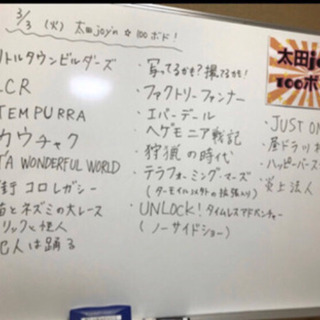 3/3 (火) 太田joy'n☆100ボド!
リトルタウンビルダーズ
LCR
TEMPURRA
カウチャク
TA WONDERFUL WORLD
コロレガシー
とネズミの大レース
リックと怪人
犯人は踊る
・写ってるかも?撮ってるかも!
・ファクトリーファンナー
・エバーデール
・ヘゲモニア戦記
・狩猟の時代
・テラフォーミング・マーズ
(ターモイル以外の拡張入り)
・UNLOCK!タイムレスアドベンチャー
(ノーサイドショー)
太田jo
100ボ
・JUST ON
・昼ドラ
・ハッピーバース
・炎上法人